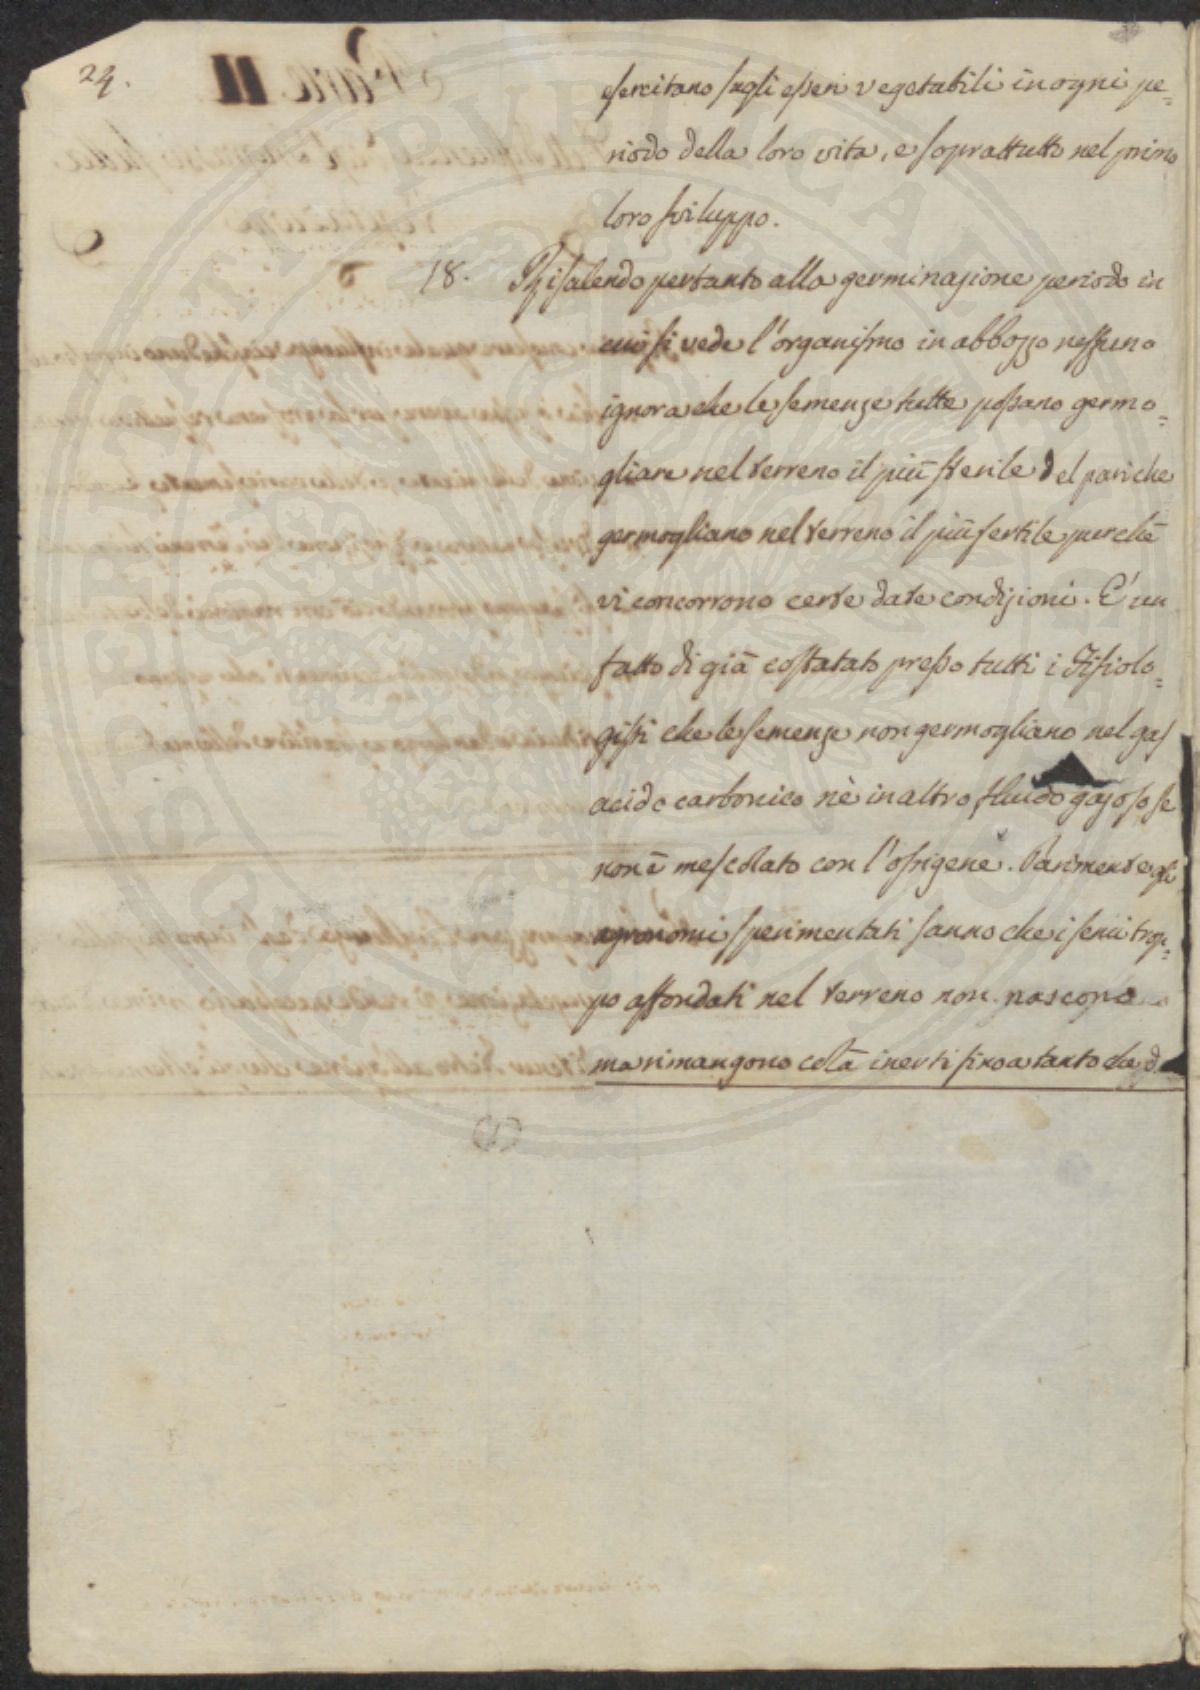 24.
esercitano sugli esseri vegetabili in ogni pe=
riodo della loro vita, e soprattutto nel primo
loro sviluppo.
18. Risalendo pertanto alla germinazione periodo in
cui si vede l'organismo in abbozzo nessuno
ignora che le semenze tutte possano germo=
gliare nel terreno il più sterile del pari che
germogliano nel terreno il più fertile purchè
vi concorrono certe date condizioni. E' un
fatto di già costatato presso tutti i Fisiolo=
gisti che le semenze non germogliano nel gas
acido carbonico nè in altro fluido gazoso se
non è mescolato con l'ossigene. Parimente gli
agronomi sperimentati sanno che i semi trop=
po affondati nel terreno non nascono
ma rimangono colà inerti sino a tanto che
(1)